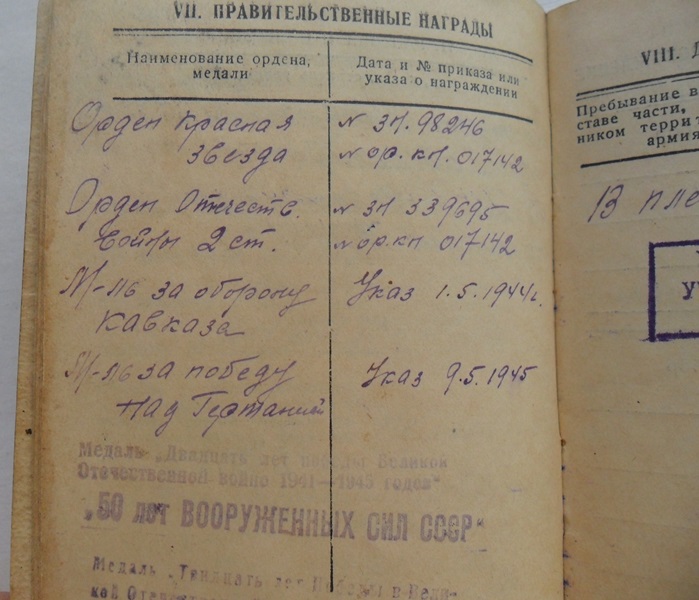 VII. ПРАВИТЕЛЬСТВЕННЫЕ НАГРАДЫ
Наименование ордена,
медали
Дата и № приказа или
указа о награждении
Орден Красная
звезда
№ зн. 98246
№ ор. кн. 017142
Орден Отечеств.
войны 2 ст.
№ зн 339695
№ ор. кн 017142
М-ль за оборону
Кавказа
Указ 1.5.1944г.
М-ль за победу
над Германией
Указ 9.5.1945
Медаль „Двадцать лет победы Великой
Отечественной войне 1941—1945 годов"
„50 лет ВООРУЖЕННЫХ СИЛ СССР"
Медаль „Тридцать лет Победы в Вели-
кой
VIII.
Пребывание в
ставе части,
ником
армия
В